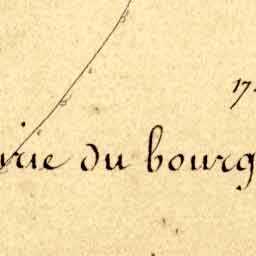 17
rie du bourg